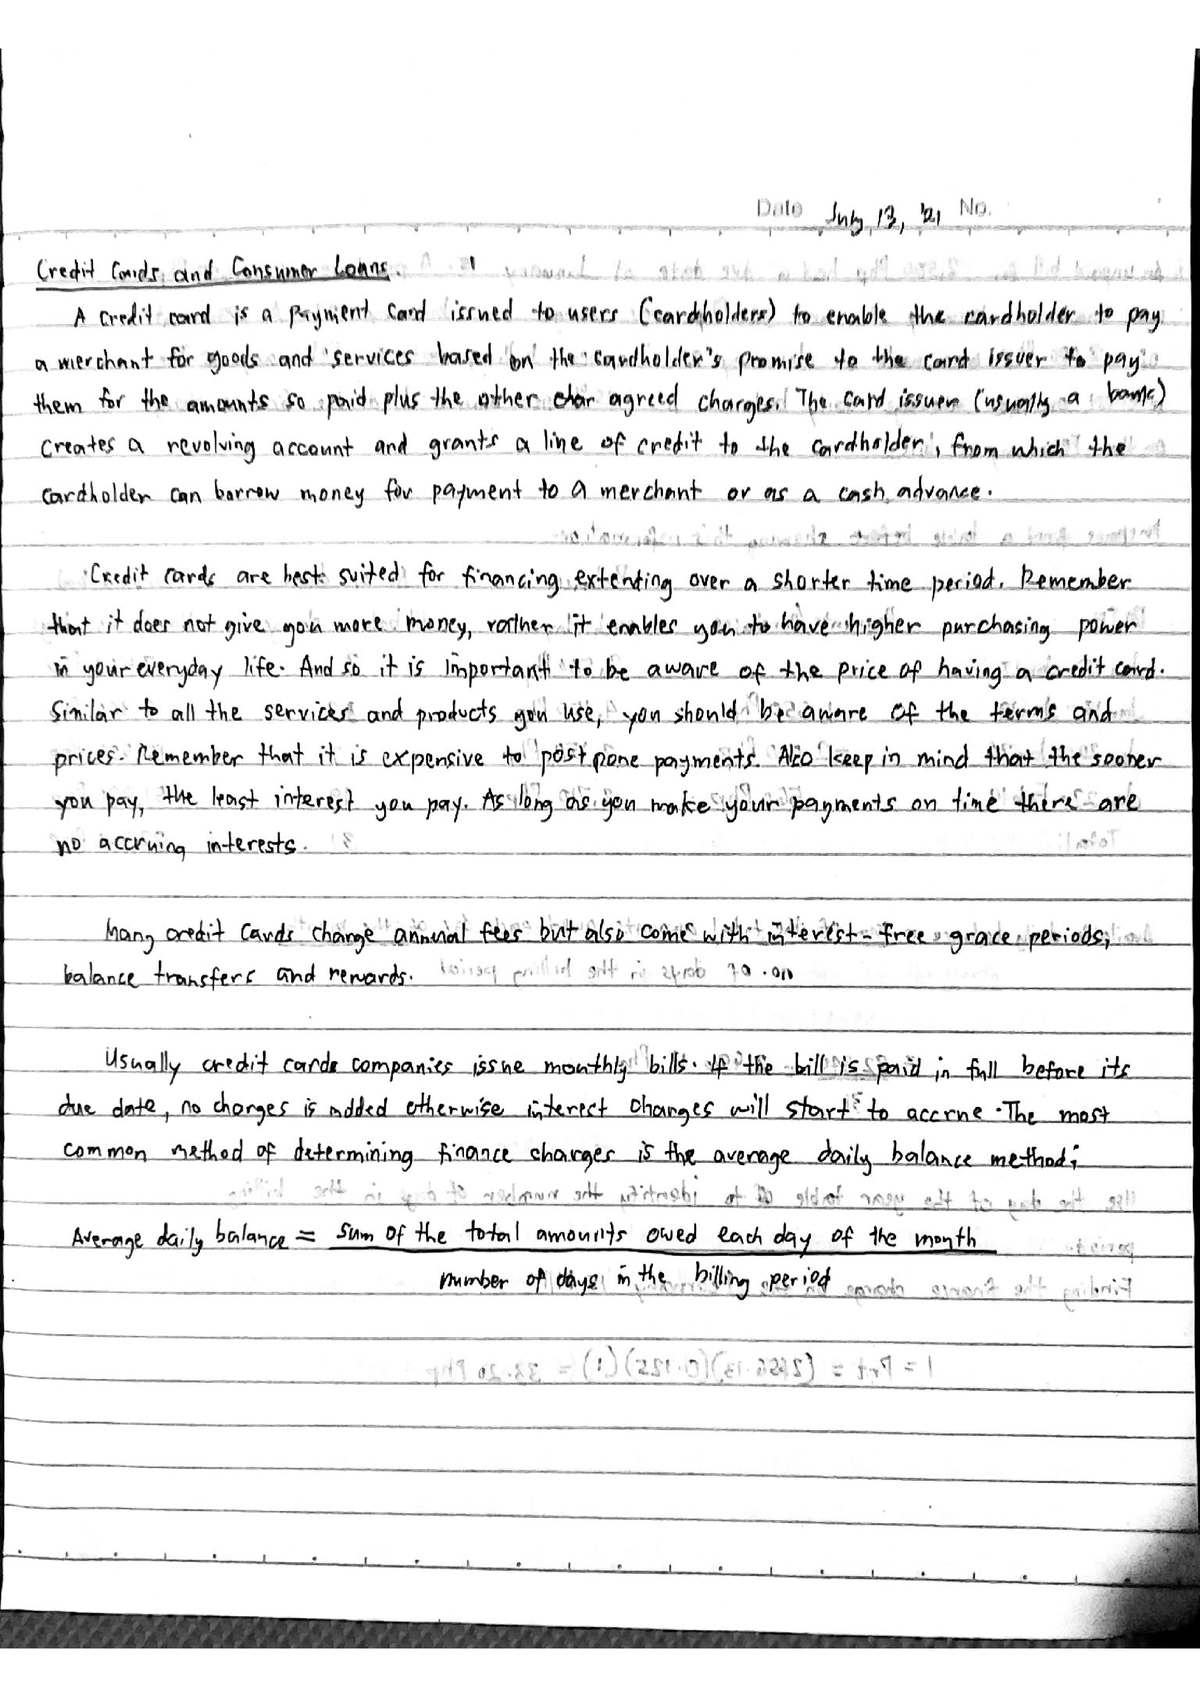 Date July 13, '21 No.
Credit Cards and Consumer Loans.
A credit card is a payment card issued to users (cardholders) to enable the cardholder to pay
a merchant for goods and services based on the cardholder's promise to the card issuer to pay
them for the amounts so paid plus the other char agreed charges. The card issuer (usually a bank)
creates a revolving account and grants a line of credit to the cardholder, from which the
cardholder can borrow money for payment to a merchant or as a cash advance.
Credit cards are best suited for financing extending over a shorter time period. Remember
that it does not give you more money, rather it enables you to have higher purchasing power
in your everyday life. And so it is important to be aware of the price of having a credit card.
Similar to all the services and products you use, you should be aware of the terms and
prices. Remember that it is expensive to postpone payments. Also keep in mind that the sooner
you pay, the least interest you pay. As long as you make your payments on time there are
no accruing interests.
Many credit cards charge annual fees but also come with interest-free grace periods,
balance transfers and rewards.
Usually credit cards companies issue monthly bills. If the bill is paid in full before its
due date, no charges is added otherwise interest charges will start to accrue. The most
common method of determining finance charges is the average daily balance method;
Average daily balance = sum of the total amounts owed each day of the month
number of days in the billing period